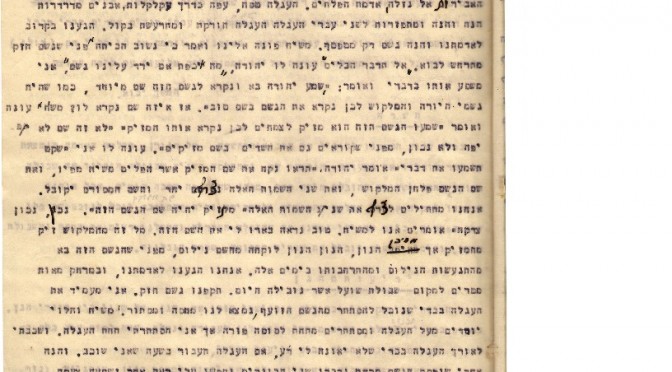 אל גזלה, אדמת הפלחים. העגלה מטה, עפה בדרך עקלקלות, אבנים מדרדרות
הנה והנה ומתפזרות לשני עברי העגלה חורקת ומתרעשת בקול. הגענו בקרוב
לאדמתנו והנה גשם דק מטפטף. משיח פונה אלינו ואמר בי נשוב הביתה מפני שגשם חזק
מתרחש לבוא. אל תדבר הבלים עונה לו יהודה, מה איכפת אם ירד עלינו גשם, אני
משמע אותו כדברי ואומר: שמע יהודה בא ונקרא לגשם הזה שם מיוחד, כמו שהיה
גשמי היורה והמלקוש לכן נקרא את הגשם בשם טוב. אז איזה שם נקרא לו? משה עונה
ואומר שמעו הגשם הזה הוא מזיק לצמחים לכן נקרא אותו המזיק לא זה שם לא
יפה ולא נכון, מפני שקוראים גם את השדים בשם מזיקים. עונה לו אני שקט
תשמעו את דברי אומר יהודה. תראו נקח את שם המזיק אשר הפליט משיח מפיו, ואת
שם הגשם מלחן המלקוש, ואת שני השמות האלה נצרף יחד והשם המסורס יקובל.
אנחנו מתחילים לצרף את שני השמות האלה יהיה שם הגשם הזה. נכון, נכון
צדקת אומרים אנו למשיח. טוב נראה בארו לי את השם הזה. מל זה מהמלקוש זיק
מהמזיק אך הנון, הנון הנון לוקחה מהשם נילוס, מפני שהגשם הזה בא
מהתגעשות הנילוס ומהתרחבותו בימים אלה. אנחנו הגענו לאדמתנו, ובמרחק מאות
מטרים למקום שבולת שועל אשר נובילה היום. תקפנו גשם חזק. אני מעמיד את
העגלה בכדי שנוכל להסתתר מהגשם הזועף, נמצא לנו מחסה ומסתור. משיח והלוי
יורדים מעל העגלה ומסתתרים מתחת לסוסה פורה אך אני הסתתרתי תחת העגלה. ושכבתי
לאורך העגלה בכדי שלא יאונה לי רע, אם העגלה תעבור בשעה שאני שוכב. והנה